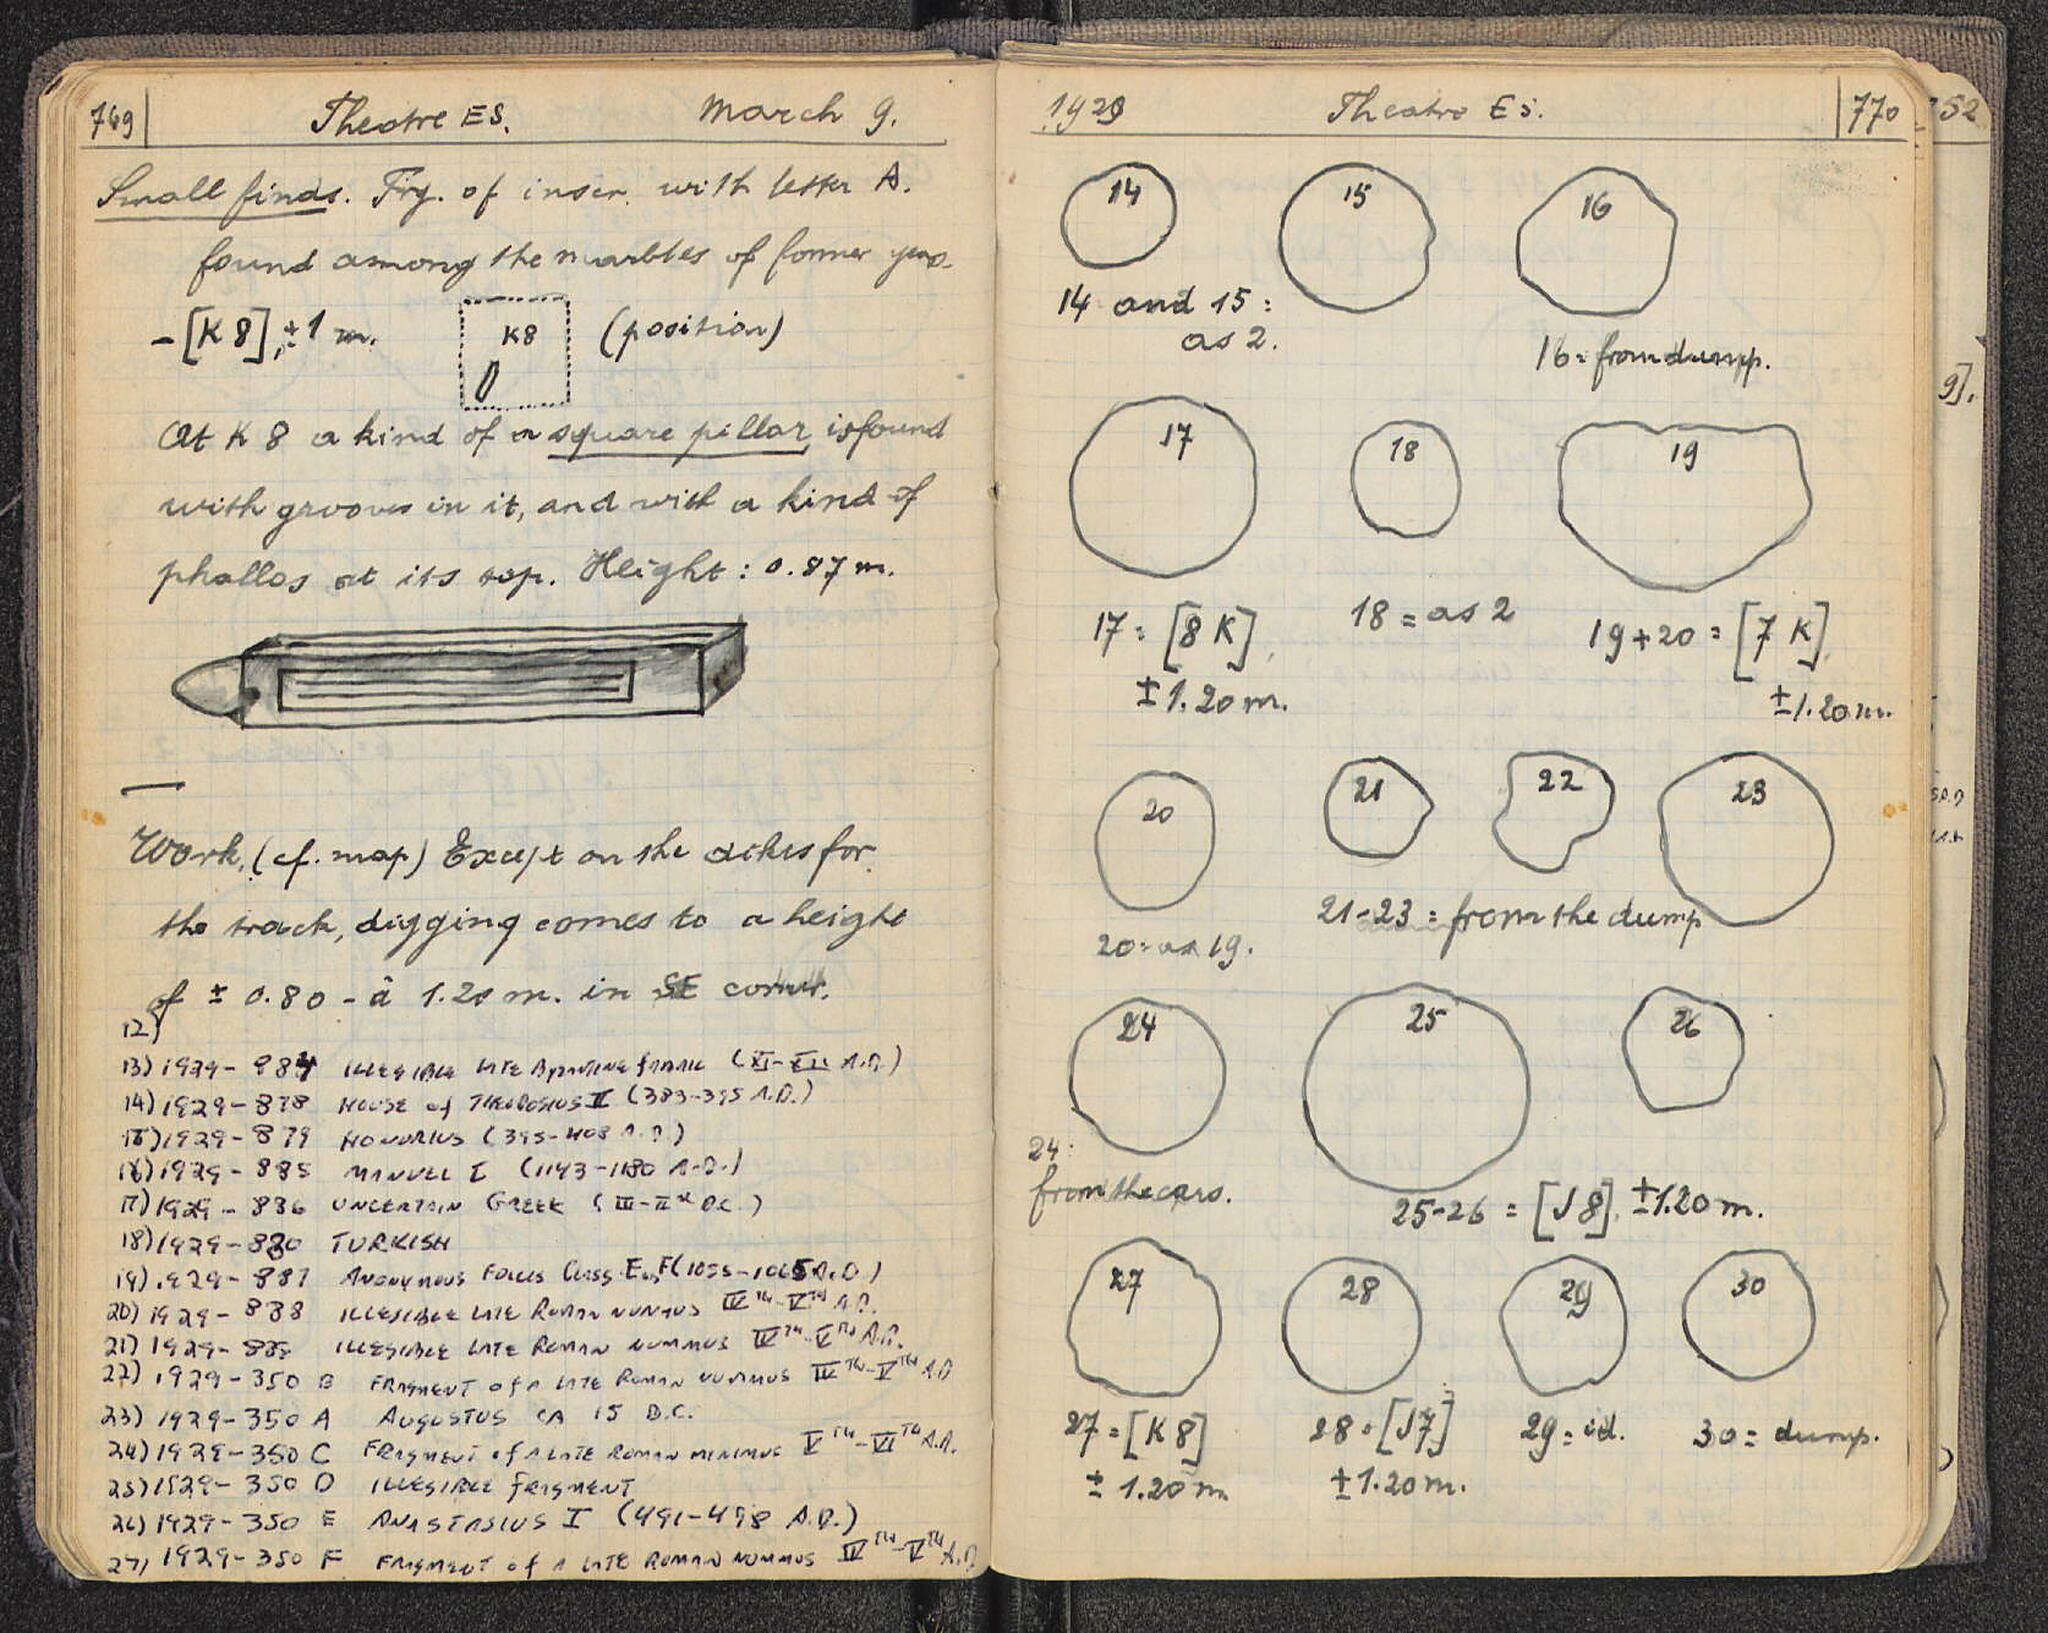 769 Theatre ES. March 9.
Small finds. Frg. of inscr. with letter A.
found among the marbles of former years.
- [K 8], ± 1 m. K8 (position)
At K 8 a kind of a square pillar is found
with grooves in it, and with a kind of
phallos at its top. Height: 0.87 m.
Work, (cf. map) Except on the dikes for
the track, digging comes to a height
of ± 0.80 - à 1.20 m. in SE corner.
12)
13) 1929- 884 ILLEGIBLE LATE BYZANTINE (XI-XII A.D.)
14) 1929-878 HOUSE of THEODOSIUS II (383-395 A.D.)
15) 1929-879 HONORIUS (395-408 A.D.)
16) 1929-885 MANUEL I (1143-1180 A.D.)
17) 1929-886 UNCERTAIN GREEK (III-II B.C.)
18) 1929-880 TURKISH
19) 1929-887 ANONYMOUS FOLLIS CLASS E F (1055-1065 A.D.)
20) 1929-888 ILLEGIBLE LATE ROMAN NUMMUS IVTH-VTH A.D.
21) 1929- ILLEGIBLE LATE ROMAN NUMMUS IVTH-VTH A.D.
22) 1929-350 B FRAGMENT of A LATE ROMAN NUMMUS IVTH-VTH A.D
23) 1929-350 A AUGUSTUS CA 15 B.C.
24) 1929-350 C FRAGMENT of A LATE ROMAN MINIMUS VTH-VITH A.D.
25) 1929-350 D ILLEGIBLE FRAGMENT
26) 1929-350 E ANASTASIUS I (491-498 A.D.)
27) 1929-350 F FRAGMENT of A LATE ROMAN NUMMUS IVTH-VTH A.D
1929 Theatre ES. 770
14 15 16
14 and 15:
as 2.
16= from dump.
17 18 19
17= [8 K]
± 1.20 m.
18 = as 2
19+20 = [7 K]
±1.20 m.
20 21 22 23
20= as 19.
21-23 = from the dump
24 25 26
24:
from the cars.
25-26 = [J 8]. ±1.20 m.
27 28 29 30
27=[K 8]
± 1.20 m
28=[J7]
±1.20 m.
29=id.
30= dump.
52
9].